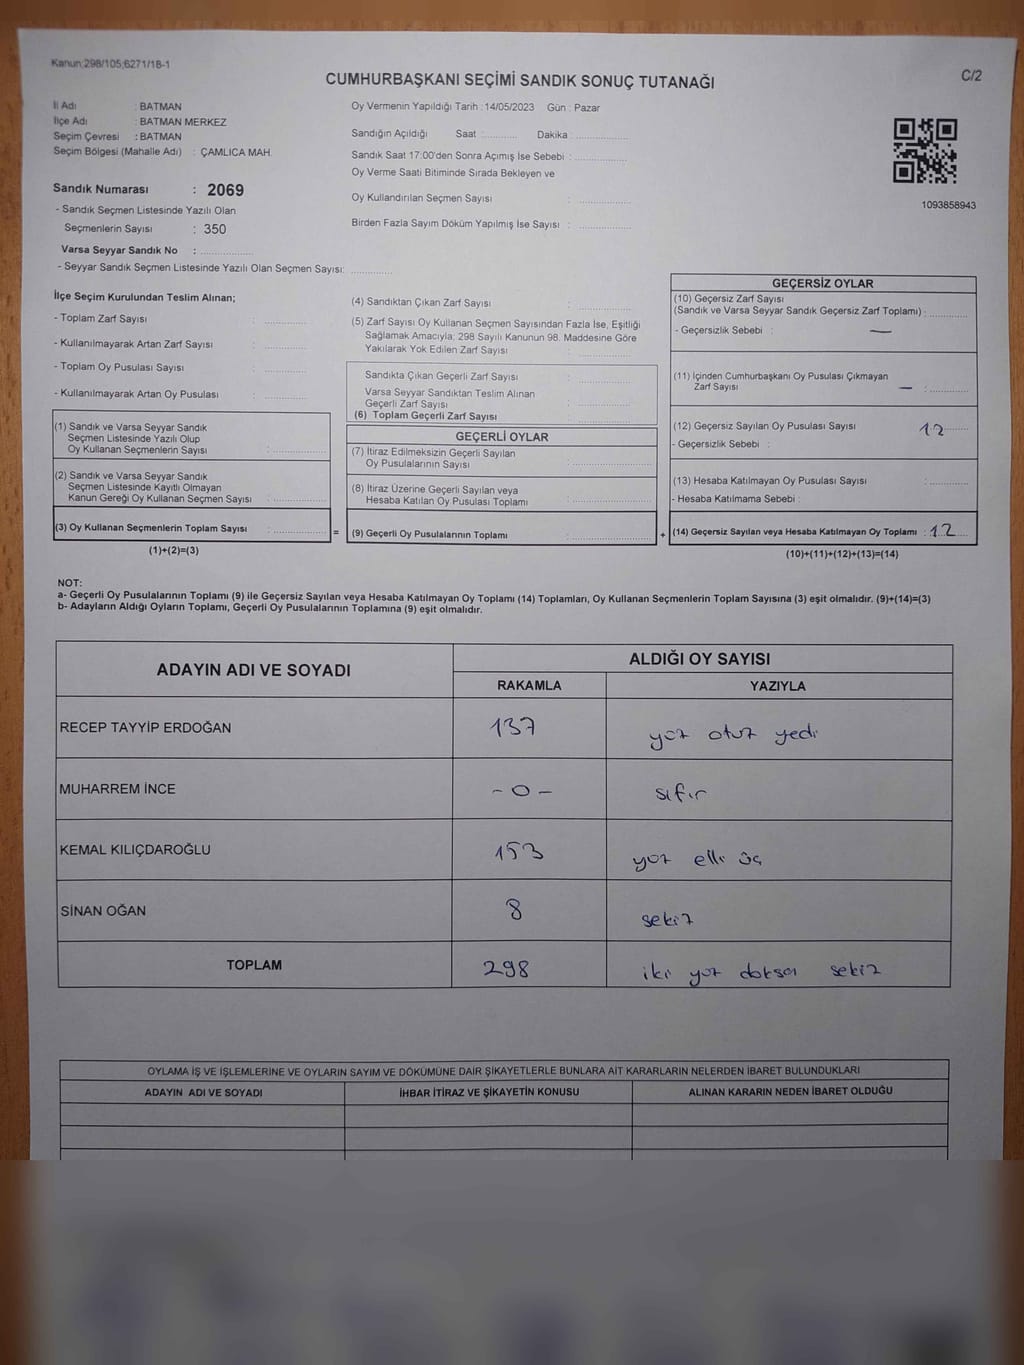 Kanun:298/105;6271/18-1
CUMHURBAŞKANI SEÇİMİ SANDIK SONUÇ TUTANAĞI
C/2
İl Adı : BATMAN
İlçe Adı : BATMAN MERKEZ
Seçim Çevresi : BATMAN
Seçim Bölgesi (Mahalle Adı) : ÇAMLICA MAH.
Sandık Numarası : 2069
- Sandık Seçmen Listesinde Yazılı Olan
Seçmenlerin Sayısı : 350
Varsa Seyyar Sandık No :
- Seyyar Sandık Seçmen Listesinde Yazılı Olan Seçmen Sayısı:
Oy Vermenin Yapıldığı Tarih :14/05/2023 Gün : Pazar
Sandığın Açıldığı Saat : Dakika :
Sandık Saat 17:00'den Sonra Açımış İse Sebebi :
Oy Verme Saati Bitiminde Sırada Bekleyen ve
Oy Kullandırılan Seçmen Sayısı :
Birden Fazla Sayım Döküm Yapılmış İse Sayısı :
1093858943
İlçe Seçim Kurulundan Teslim Alınan;
- Toplam Zarf Sayısı :
- Kullanılmayarak Artan Zarf Sayısı :
- Toplam Oy Pusulası Sayısı :
- Kullanılmayarak Artan Oy Pusulası :
(1) Sandık ve Varsa Seyyar Sandık
Seçmen Listesinde Yazılı Olup
Oy Kullanan Seçmenlerin Sayısı :
(2) Sandık ve Varsa Seyyar Sandık
Seçmen Listesinde Kayıtlı Olmayan
Kanun Gereği Oy Kullanan Seçmen Sayısı :
(3) Oy Kullanan Seçmenlerin Toplam Sayısı :
(1)+(2)=(3)
(4) Sandıktan Çıkan Zarf Sayısı :
(5) Zarf Sayısı Oy Kullanan Seçmen Sayısından Fazla İse, Eşitliği
Sağlamak Amacıyla; 298 Sayılı Kanunun 98. Maddesine Göre
Yakılarak Yok Edilen Zarf Sayısı :
Sandıkta Çıkan Geçerli Zarf Sayısı :
Varsa Seyyar Sandıktan Teslim Alınan
Geçerli Zarf Sayısı :
(6) Toplam Geçerli Zarf Sayısı :
GEÇERLİ OYLAR
(7) İtiraz Edilmeksizin Geçerli Sayılan
Oy Pusulalarının Sayısı :
(8) İtiraz Üzerine Geçerli Sayılan veya
Hesaba Katılan Oy Pusulası Toplamı :
= (9) Geçerli Oy Pusulalarının Toplamı :
GEÇERSİZ OYLAR
(10) Geçersiz Zarf Sayısı
(Sandık ve Varsa Seyyar Sandık Geçersiz Zarf Toplamı) :
- Geçersizlik Sebebi : —
(11) İçinden Cumhurbaşkanı Oy Pusulası Çıkmayan
Zarf Sayısı — :
(12) Geçersiz Sayılan Oy Pusulası Sayısı 12
- Geçersizlik Sebebi :
(13) Hesaba Katılmayan Oy Pusulası Sayısı :
- Hesaba Katılmama Sebebi :
+ (14) Geçersiz Sayılan veya Hesaba Katılmayan Oy Toplamı : 12
(10)+(11)+(12)+(13)=(14)
NOT:
a- Geçerli Oy Pusulalarının Toplamı (9) ile Geçersiz Sayılan veya Hesaba Katılmayan Oy Toplamı (14) Toplamları, Oy Kullanan Seçmenlerin Toplam Sayısına (3) eşit olmalıdır. (9)+(14)=(3)
b- Adayların Aldığı Oyların Toplamı, Geçerli Oy Pusulalarının Toplamına (9) eşit olmalıdır.
ADAYIN ADI VE SOYADI
ALDIĞI OY SAYISI
RAKAMLA YAZIYLA
RECEP TAYYİP ERDOĞAN 137 yüz otuz yedi
MUHARREM İNCE - 0 - sıfır
KEMAL KILIÇDAROĞLU 153 yüz elli üç
SİNAN OĞAN 8 sekiz
TOPLAM 298 iki yüz doksan sekiz
OYLAMA İŞ VE İŞLEMLERİNE VE OYLARIN SAYIM VE DÖKÜMÜNE DAİR ŞİKAYETLERLE BUNLARA AİT KARARLARIN NELERDEN İBARET BULUNDUKLARI
ADAYIN ADI VE SOYADI İHBAR İTİRAZ VE ŞİKAYETİN KONUSU ALINAN KARARIN NEDEN İBARET OLDUĞU